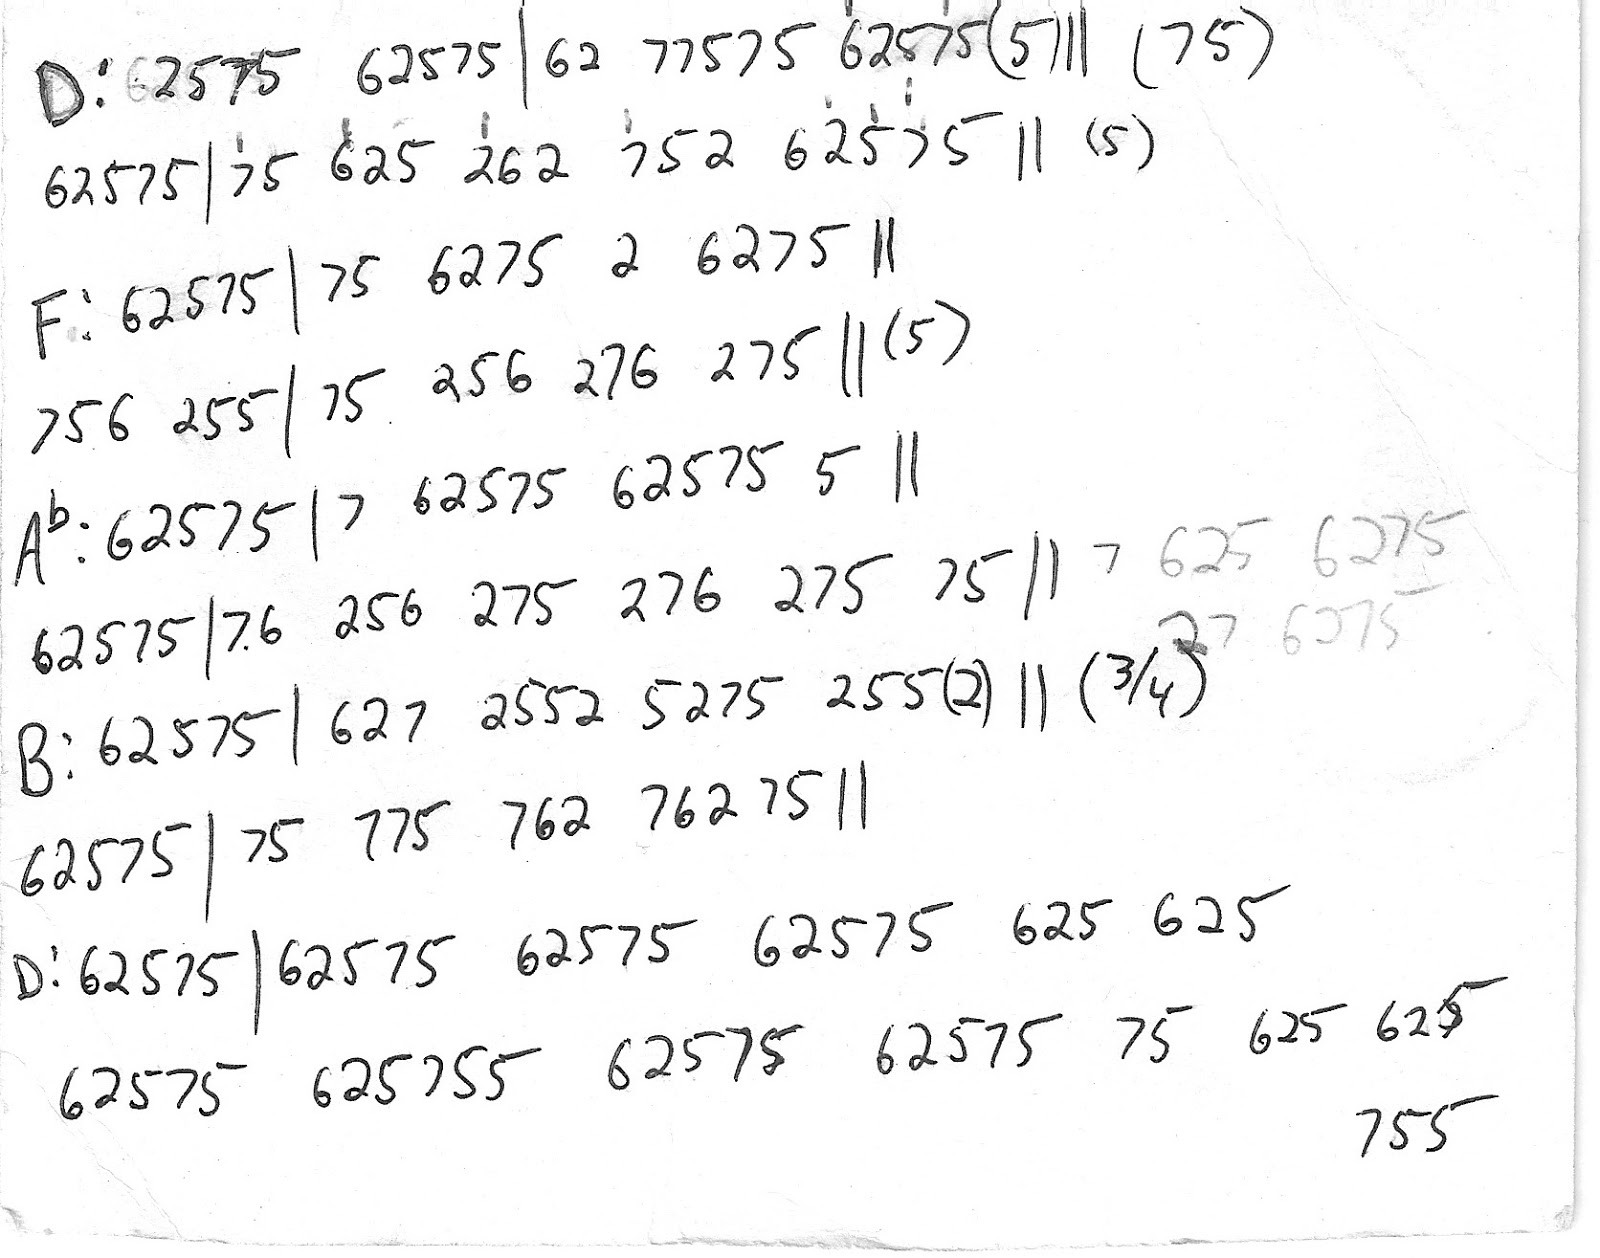 D: 62575 62575 | 62 77575 62575 (5) || (75)
62575 | 75 625 262 752 62575 || (5)
F: 62575 | 75 6275 2 6275 ||
756 255 | 75 256 276 275 || (5)
Ab: 62575 | 7 62575 62575 5 ||
62575 | 76 256 275 276 275 75 || 7 625 6275
27 6275
B: 62575 | 627 2552 5275 255(2) || (3/4)
62575 | 75 775 762 762 75 ||
D: 62575 | 62575 62575 62575 625 625
62575 625755 62575 62575 75 625 625
755